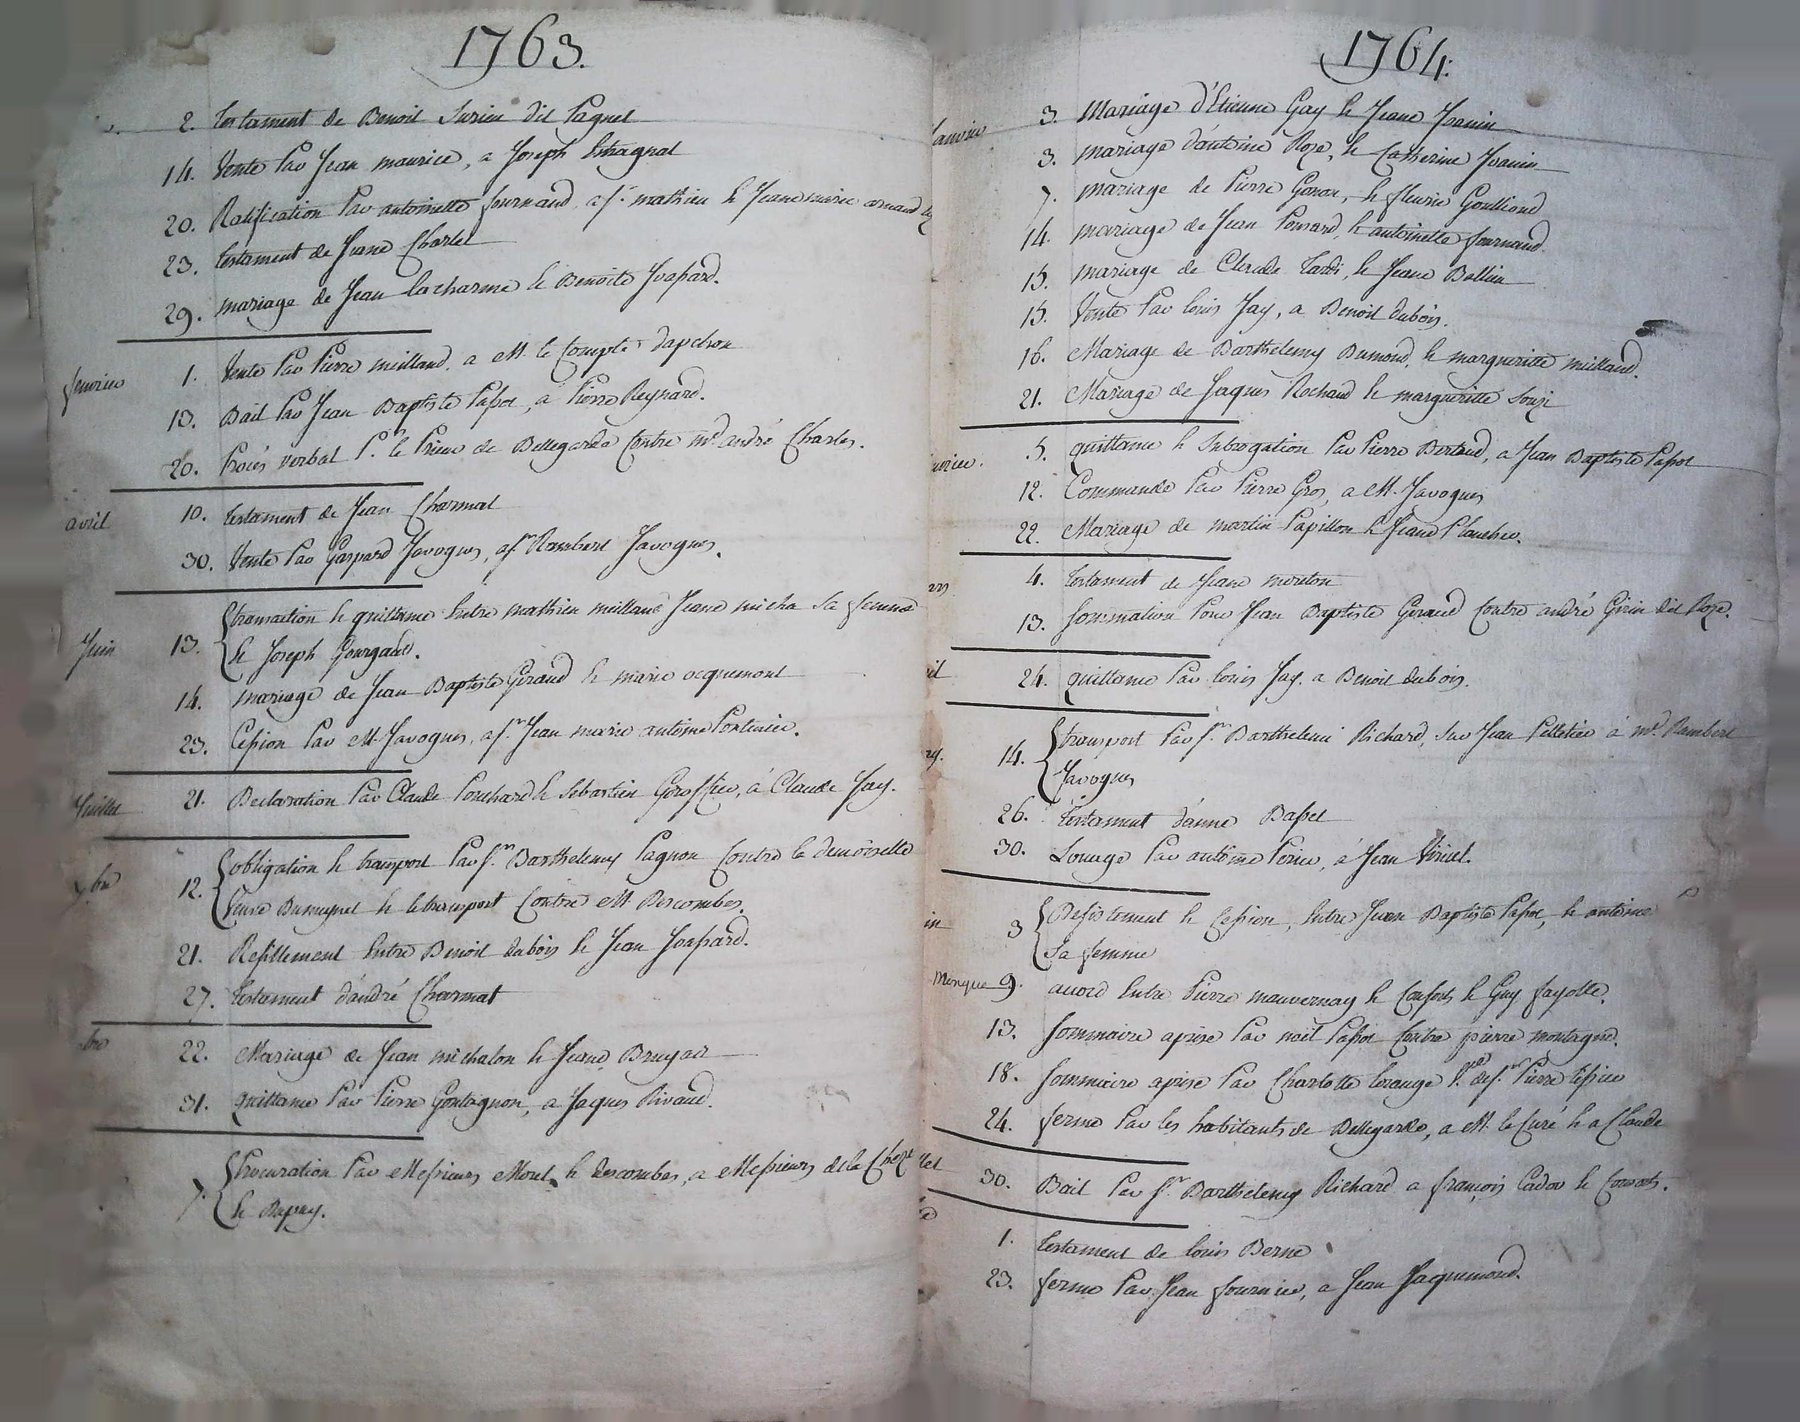 1763.
2. testament de Benoit Surieu dit Pagnet
14. Vente par Jean maurice, a Joseph
20. Ratification par antoinette fournand, a sr. mathieu & Jeane marie arnaud
23. testament de Jeane Charlet
29. mariage de Jean Lacharme & Benoite Joassard.
fevrier 1. Vente par Pierre meilland, a M. le Compte dapchon
13. Bail par Jean Baptiste Passot, a Pierre Reynard.
20. Procés verbal pr. le Prieur de Bellegarde Contre mr. andré Charles.
avril 10. testament de Jean Charmat
30. Vente par Gaspard Javogues, a sr Rambert Javogues.
Juin 13. transaction & quittance Entre mathieu meilland Jeane micha Sa femme
& Joseph Gourgaud.
14. mariage de Jean Baptiste Giraud & marie ocquemont
23. Cession par M. Javogues, a sr. Jean marie antoine Pontcnier.
Juillet 21. Declaration par Claude Ponchard & Sebastien, a Claude Jay.
bre 12. obligation & transport par sr. Barthelemy Pagnon Contre la demoiselle
Veuve Dumeynet & le transport Contre M Descombes.
21. Resillement Entre Benoit dubois & Jean Joassard.
27. testament d'andré Charmat
bre 22. Mariage de Jean michalon & Jeane Bruyas
31. quittance par Pierre Gontagnon, a Jaques Rivaud.
7. Procuration par Messieurs Morel & Descombes, a Messieurs de la
& Dupuy.
1764.
Janvier 3. Mariage d'Etienne Gay & Jeane Joanin
3. mariage d'antoine Roze, & Catherine Joanin
7. mariage de Pierre Gonon, & fleurie Goulliond
14. mariage de Jean Ponsard, & antoinette fournand.
15. mariage de Claude Tardi, & Jeane Bollien
15. Vente par louis Jay, a Benoit dubois.
16. Mariage de Barthelemy Dumond, & margueritte meilland.
21. Mariage de Jaques Rochand & margueritte Souzi
vrier. 5. quittance & Subrogation par Pierre Bertrand, a Jean Baptiste Passot
12. Commande par Pierre Gros, a M. Javogues
22. Mariage de martin Papillon & Jeane Planchet.
rs 4. testament de Jeane mouton
13. Sommation pour Jean Baptiste Giraud Contre andré Girin dit Roze.
il 24. quittance par louis Jay. a Benoit dubois.
ay. 14. transport par sr. Barthelemi Richard, Sur Jean Pelletier a mr. Rambert
Javogues
26. testament d'anne Basset
30. Louage par antoine Perier, a Jean Viricel.
in 3 Desistement & Cession, Entre Jean Baptiste Passot, & antoine
Sa femme
Manque 9. accord Entre Pierre mauvernay & Consorts & Guy fayolle.
13. Sommaire aprise par noël Passot Contre pierre montagne.
18. Sommaire aprise par Charlotte Pierre
24. ferme par les habitants de Bellegarde, a M. le Curé & a Claude
let 30. Bail par sr. Barthelemy Richard a françois Cador & Consorts.
1. testament de louis Berne
23. ferme par Jean fournier, a Jean Jacquemond.